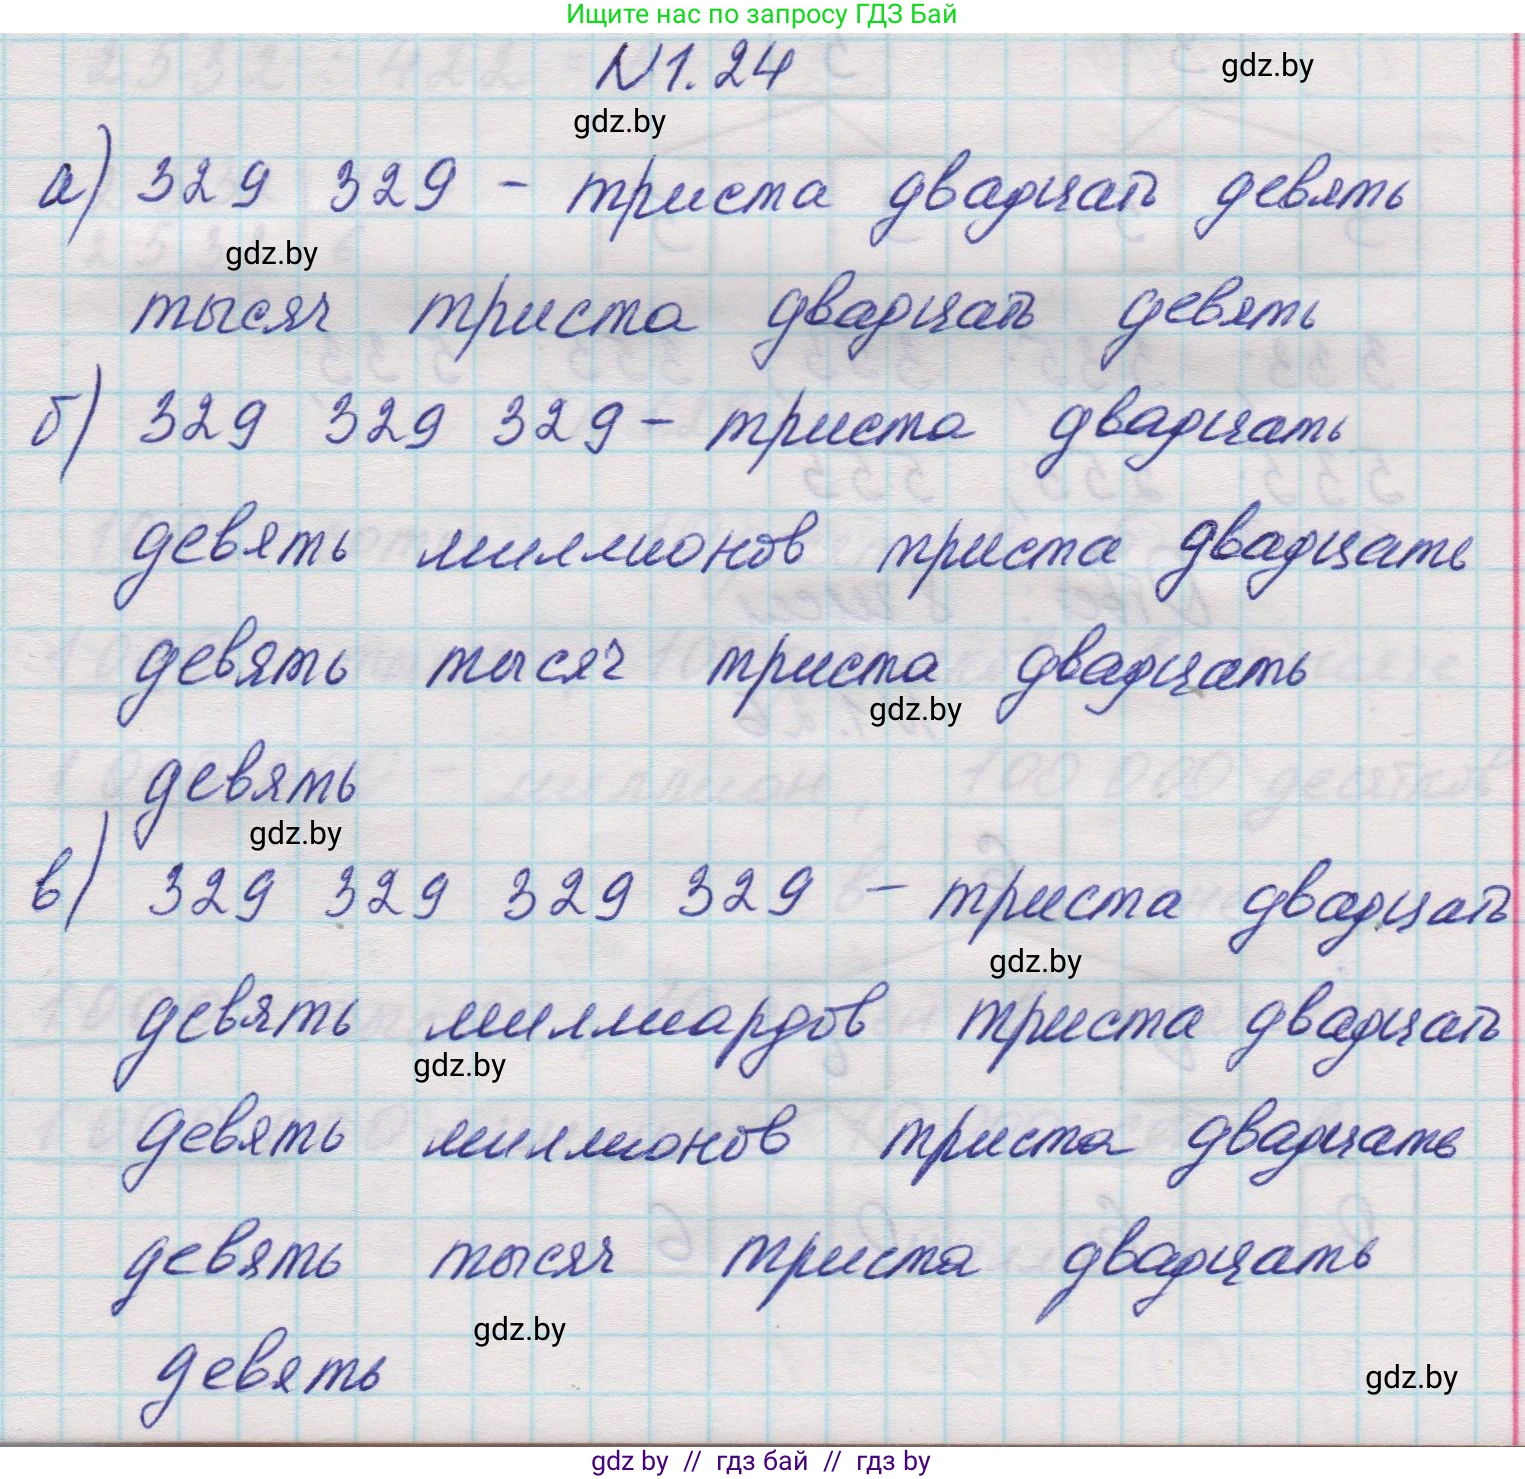 Ищите нас по запросу ГДЗ Бай
N 1.24
gdz.by
gdz.by
а) 329 329 - триста двадцать девять
gdz.by
тысяч триста двадцать девять
б) 329 329 329 - триста двадцать
девять миллионов триста двадцать
девять тысяч триста двадцать
gdz.by
девять
gdz.by
в) 329 329 329 329 - триста двадцать
gdz.by
девять миллиардов триста двадцать
gdz.by
девять миллионов триста двадцать
девять тысяч триста двадцать
gdz.by
девять
gdz.by
gdz by // гдз бай // гдз by